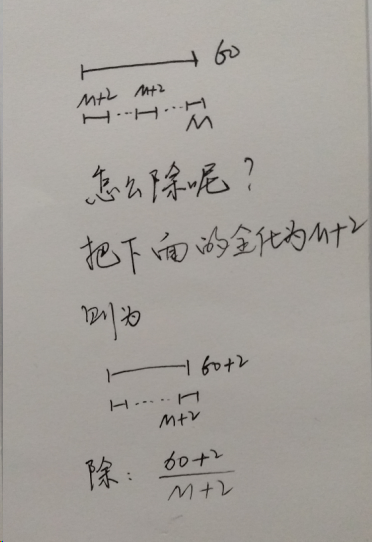 60
M+2 M+2
M
怎么除呢?
把下面的全化为M+2
则为
60+2
M+2
除: 60+2
M+2